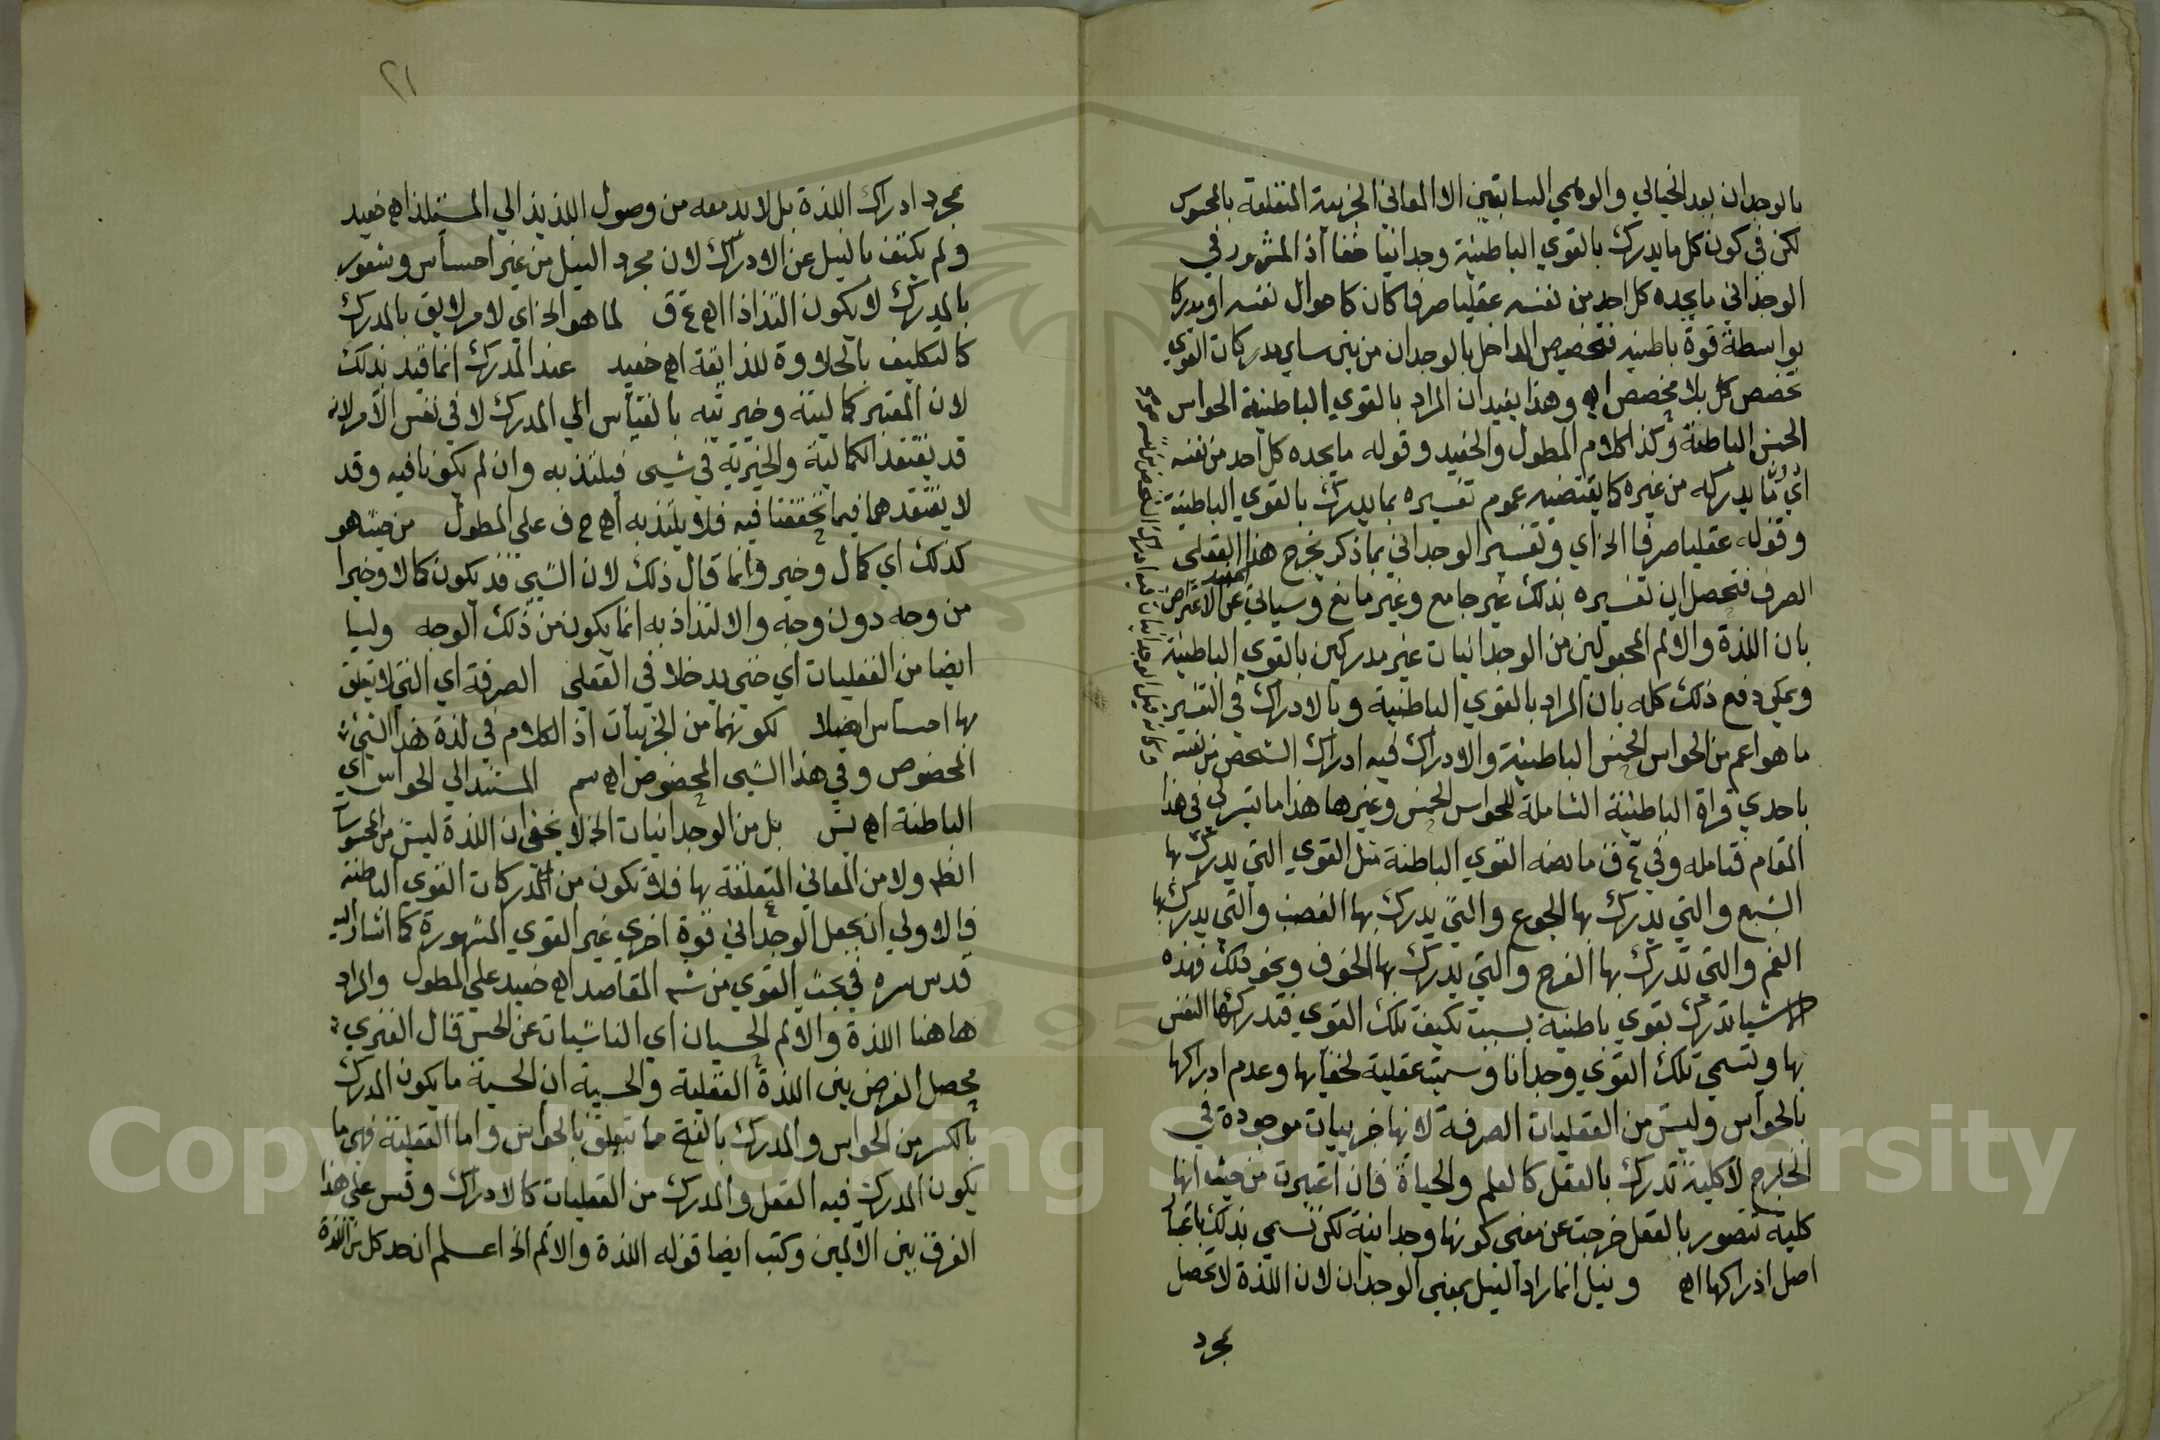 بالوجدان بعد الخيالي والوهمي السابقين الا المعاني الجزيية المتعلقة بالمحسوس
لكن في كون كل ما يدرك بالقوي الباطنية وجدانيا خفا اذ المشهور في
الوجداني ما يجده كل احد من نفسه عقليا صرفا كان كاحوال نفسه او مدركا
بواسطة قوة باطنية فتخصيص الداخل بالوجدان من بين ساير مدركات القوي
تخصص كل بلا مخصص اه وهذا يفيد ان المراد بالقوي الباطنية الحواس
الخمس الباطنة وكذا كلام المطول والحفيد وقوله ما يجده كل احد من نفسه
اي لا ما يدركه من غيره كما يقتضيه عموم تفسيره بما يدرك بالقوي الباطنية
وقوله عقليا صرفا الخ اي وتفسير الوجداني بما ذكر يخرج هذا العقلي
الصرف فتحصل ان تفسيره بذلك غير جامع وغير مانع وسياتي عن الاعتراض
بان اللذة والالم المجعولين من الوجدانيات غير مدركين بالقوي الباطنية
ويمكن دفع ذلك كله بان المراد بالقوي الباطنية وبالادراك في التفسير
ما هو اعم من الحواس الخمس الباطنية والادراك فيه ادراك الشخص من نفسه
باحدي قواه الباطنية الشاملة للحواس الخمس وغيرها هذا ما تيسر لي في هذا
المقام فتامله وفي ع ق ما نصه القوي الباطنة مثل القوي التي يدرك بها
الشبع والتي يدرك بها الجوع والتي يدرك بها الغضب والتي يدرك بها
الغم والتي تدرك بها الفرح والتي يدرك بها الخوف ونحو ذلك فهذه
الاشيا تدرك بقوي باطنية بسبب تكيف تلك القوي فتدركها النفس
بها وتسمي تلك القوي وجدانا وسميت عقلية لخفايها وعدم ادراكها
بالحواس وليست من العقليات الصرفة لانها جزييات موجودة في
الخارج لا كلية تدرك بالعقل كالعلم والحياة فان اعتبرت من حيث انها
كلية تتصور بالعقل خرجت عن معني كونها وجدانية لكن تسمي بذلك باعتبار
اصل ادراكها اه ونيل انما زاد النيل بمعني الوجدان لان اللذة لا تحصل
بمجرد
٢١
بمجرد ادراك اللذة بل لا بد معه من وصول اللذيذ الي المستلذ اه حفيد
ولم يكتف بالنيل عن الادراك لان مجرد النيل من غير احساس وشعور
بالمدرك لا يكون التذاذا اه ع ق لما هو الخ اي لامر لايق بالمدرك
كالتكليف بالحلاووة للذايقة اه حفيد عند المدرك انما قيد بذلك
لان المعتبر كماليته وخيريته بالقياس الي المدرك لا في نفس الامر لانه
قد يعتقد الكمالية والخيرية في شيي فيلتذ به وان لم يكونا فيه وقد
لا يعتقدهما فيما تحققتا فيه فلا يلتذ به اه ح ف علي المطول من حيث هو
كذلك اي كمال وخير وانما قال ذلك لان الشيي قد يكون كمالا وخيرا
من وجه دون وجه والالتذاذ به انما يكون من ذلك الوجه وليسا
ايضا من العقليات اي حتي يدخلا في العقلي الصرفة اي التي لا تعلق
بها احساس اصلا لكونهما من الجزييات اذ الكلام في لذة هذا الشيي
المخصوص وفي هذا الشيي المخصوص اه سم المستند الي الحواس اي
الباطنة اه يس بل من الوجدانيات الخ لا يخفي ان اللذة ليست من المحسوسات
الظه ولا من المعاني المتعلقة بها فلا تكون من المدركات القوي الباطنة
فالاولي ان يجعل الوجداني قوة اخري غير القوي المشهورة كما اشار اليه
قدس سره في بحث القوي من شرح المقاصد اه حفيد علي المطول والمراد
هاهنا اللذة والالم الحسيان اي الناشيات عن الحس قال الفنري
محصل الفرض بين اللذة العقلية والحسية ان الحسية ما يكون المدرك
بالكسر من الحواس والمدرك بالفتح مما تتعلق بالحواس واما العقلية فهي ما
يكون المدرك فيه العقل والمدرك من العقليات كالادراك وقس علي هذا
الفرق بين الالمين وكتب ايضا قوله اللذة والالم الخ اعلم ان حد كل من اللذة